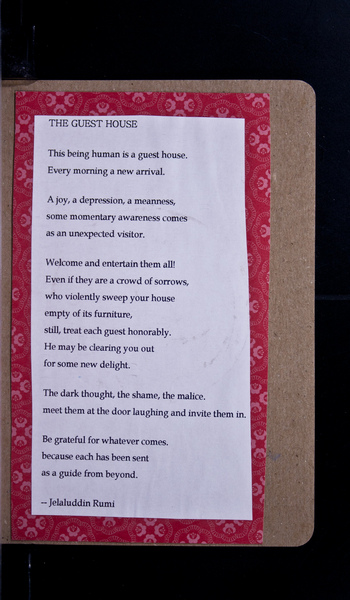 THE GUEST HOUSE
This being human is a guest house.
Every morning a new arrival.
A joy, a depression, a meanness,
some momentary awareness comes
as an unexpected visitor.
Welcome and entertain them all!
Even if they are a crowd of sorrows,
who violently sweep your house
empty of its furniture,
still, treat each guest honorably.
He may be clearing you out
for some new delight.
The dark thought, the shame, the malice.
meet them at the door laughing and invite them in.
Be grateful for whatever comes.
because each has been sent
as a guide from beyond.
-- Jelaluddin Rumi